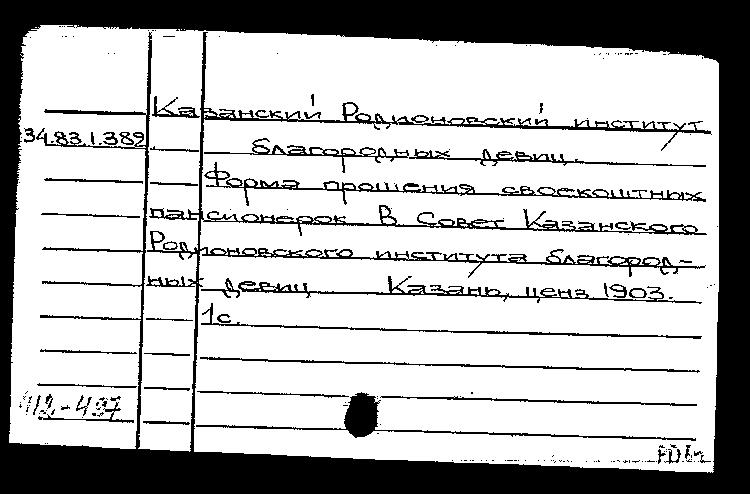 Казанский Родионовский институт
34.83.1.389
благородных девиц.
Форма прошения своекоштных
пансионерок В Совет Казанского
Родионовского института благород-
ных девиц Казань, ценз. 1903.
1с.
412-497